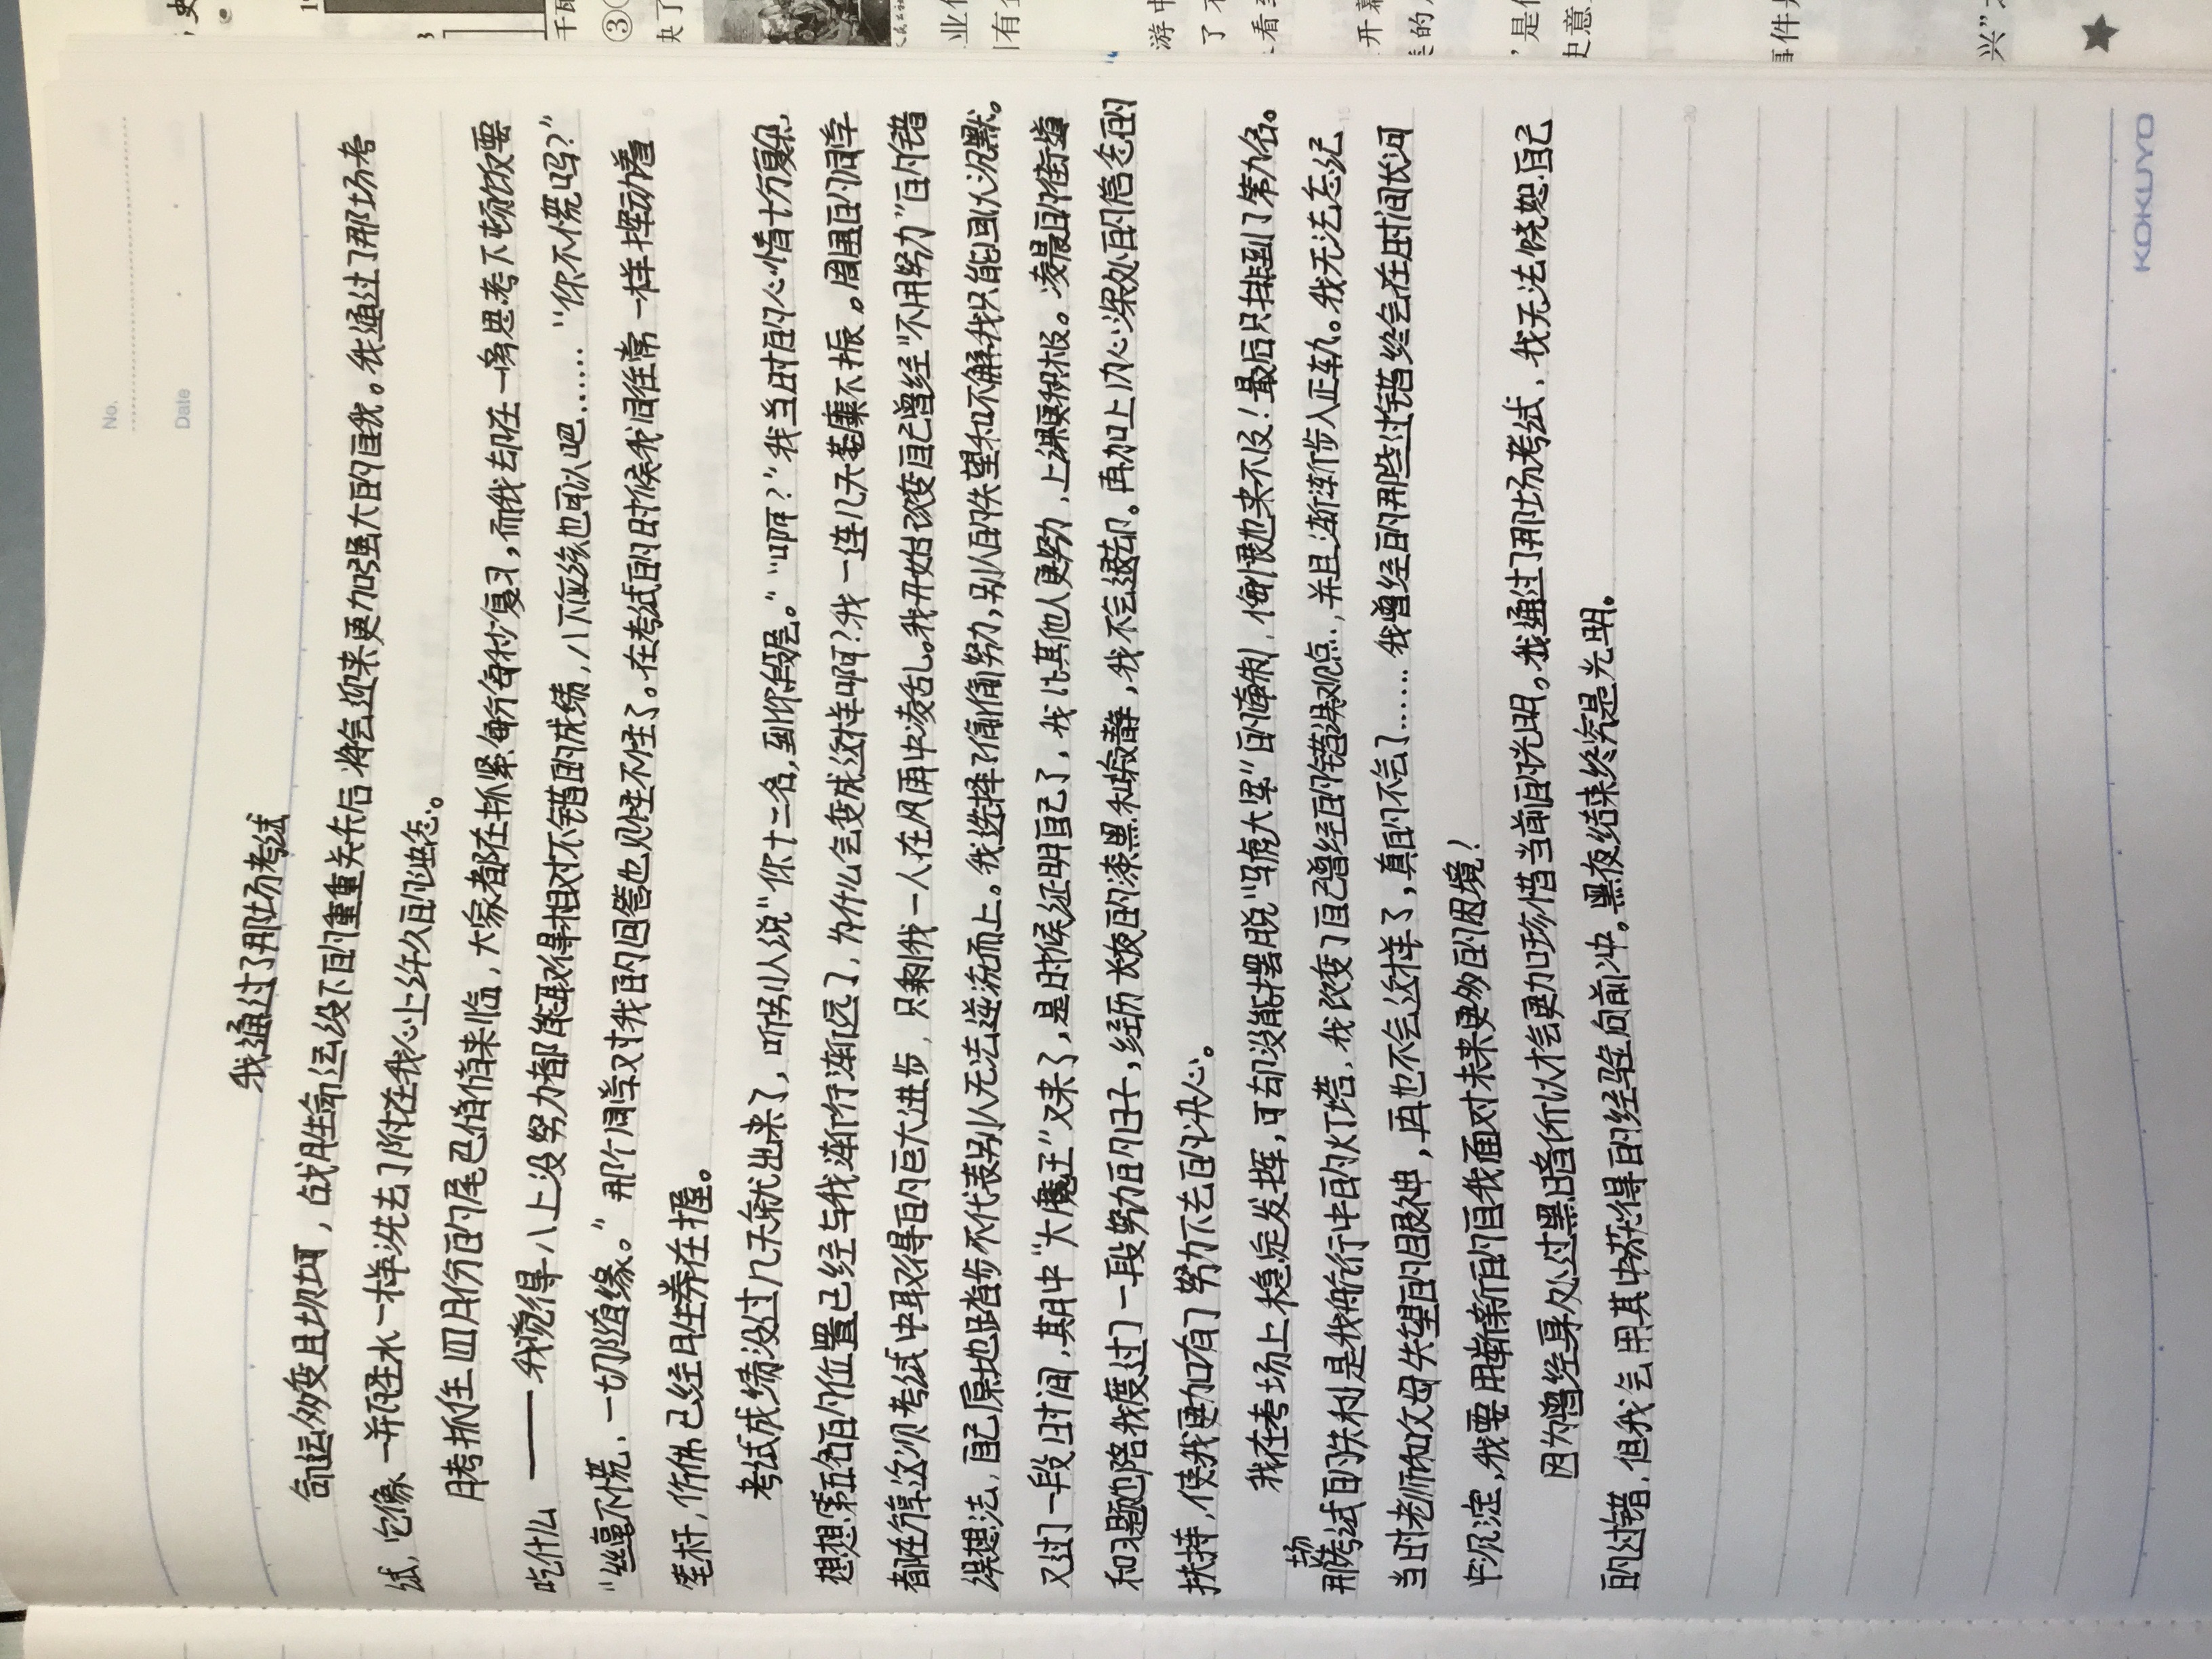 No.
Date
我通过了那场考试
命运多变且坎坷，战胜命运设下的重重关卡后将会迎来更加强大的自我。我通过了那场考
试，它像一并硝酸水一样洗去了附在我心上许久的尘态。
月考抓住四月份的尾巴悄悄来临，大家都在抓紧每分每秒复习，而我却在一旁思考下顿饭要
吃什么——我觉得八上没努力都能取得相对不错的成绩，八下应该也可以吧……“你不慌吗？”
“丝毫不慌，一切随缘。”那个同学对我的回答也见怪不怪了。在考试的时候我同往常一样挥动着
笔杆，仿佛已经胜券在握。
考试成绩没过几天就出来了，听别人说“你十二名，到你段层。”“啊？”我当时的心情十分复杂，
想想第五名的位置已经与我渐行渐远了，为什么会变成这样啊？我一连几天萎靡不振。周围的同学
都在分享这次考试中取得的巨大进步，只剩我一人在风雨中凌乱。我开始改变自己曾经“不用努力”的错
误想法，自己原地踏步不代表别人无法逆流而上。我选择了偷偷努力，别人的失望和不解我只能回以沉默。
又过了一段时间，期中“大魔王”又来了，是时候证明自己了，我比其他人更努力，上课更积极。凌晨的街道
和习题也陪我度过了一段努力的日子，经历长夜的漆黑和寂静，我不会退却。再加上内心深处的信念的
扶持，使我更加有了努力下去的决心。
我在考场上稳定发挥，可却没能摆脱“马虎大军”的牵制，悔恨也来不及！最后只排到了第九名。
那场考试的失利是我航行中的灯塔，我改变了自己曾经的错误观点，并且渐渐步入正轨。我无法忘记
当时老师和父母失望的眼神，再也不会这样了，真的不会了……我曾经的那些过错终会在时间长河
中沉淀，我要用崭新的自我面对未来更多的困境！
因为曾经身处过黑暗所以才会更加珍惜当前的光明。我通过了那场考试，我无法饶恕自己
的过错，但我会用其中获得的经验向前冲。黑夜结束终究是光明。
KOKUYO